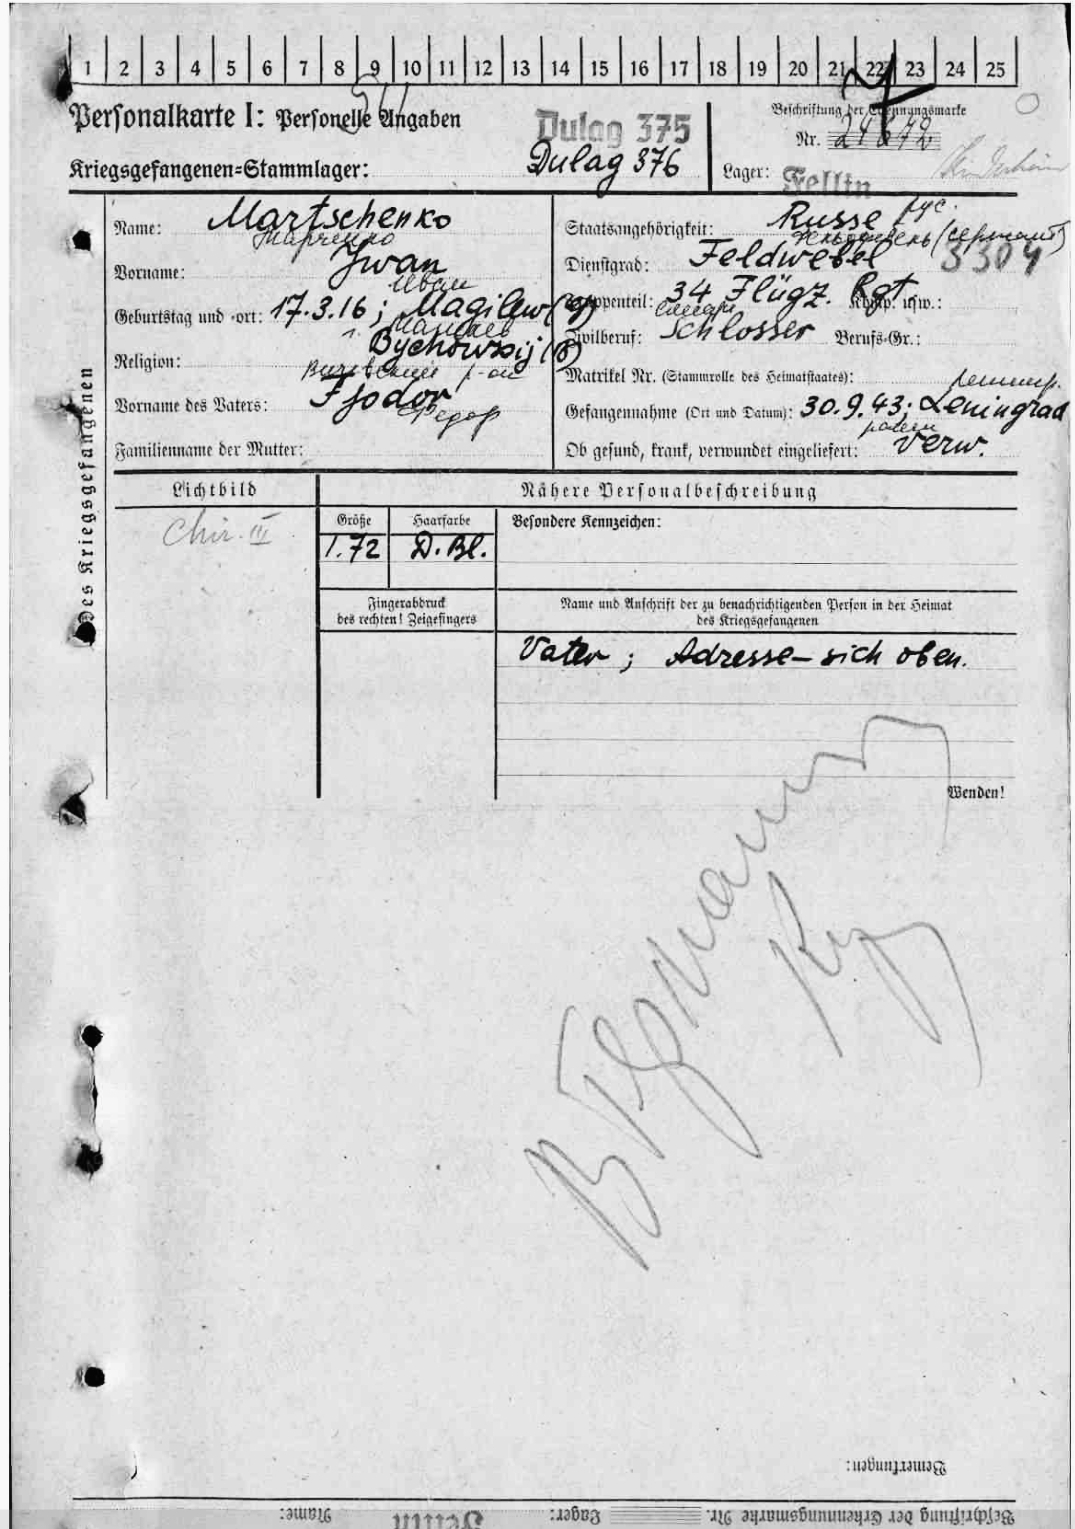 1 2 3 4 5 6 7 8 9 10 11 12 13 14 15 16 17 18 19 20 21 22 23 24 25
Personalkarte I: Personelle Angaben
Dulag 375
Beschriftung der Erkennungsmarke
Nr.
Kriegsgefangenen=Stammlager: Dulag 376
Lager: Fellin
Des Kriegsgefangenen
Name: Martschenko
Марченко
Vorname: Jwan
Иван
Geburtstag und -ort: 17.3.16; Magilew (g)
г. Магилев
Bychowskij (b)
Religion:
р-он
Vorname des Vaters: Fjodor
Федор
Familienname der Mutter:
Staatsangehörigkeit: Russe рус.
фельдфебель (сержант)
Dienstgrad: Feldwebel 3304
Truppenteil: 34 Flügz. Rgt. Komp. usw.:
слесарь
Zivilberuf: Schlosser Berufs-Gr.:
Matrikel Nr. (Stammrolle des Heimatstaates):
ленингр.
Gefangennahme (Ort und Datum): 30.9.43; Leningrad
ранен
Ob gesund, krank, verwundet eingeliefert: verw.
Lichtbild
Nähere Personalbeschreibung
Chir. III
Größe Haarfarbe Besondere Kennzeichen:
1.72 D. Bl.
Fingerabdruck
des rechten! Zeigefingers
Name und Anschrift der zu benachrichtigenden Person in der Heimat
des Kriegsgefangenen
Vater; Adresse – sich oben.
Wenden!
В Германии
Bemerkungen:
Beschriftung der Erkennungsmarke Nr. Lager: Fellin Name: